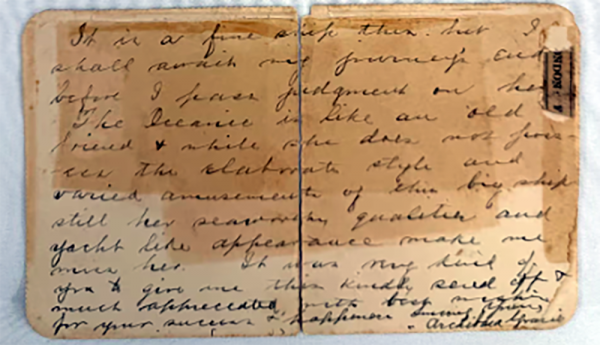 It is a fine ship this but I
shall await my journey's end
before I pass judgment on her
The Oceanic is like an old
friend & while she does not poss-
-ess the elaborate style and
varied amusements of this big ship
still her seaworthy qualities and
yacht like appearance make me
miss her. It was very kind of
you to give me this kindly send off &
much appreciated with best wishes
for your success & happiness Sincerely Yours
Archibald Gracie
ONDON